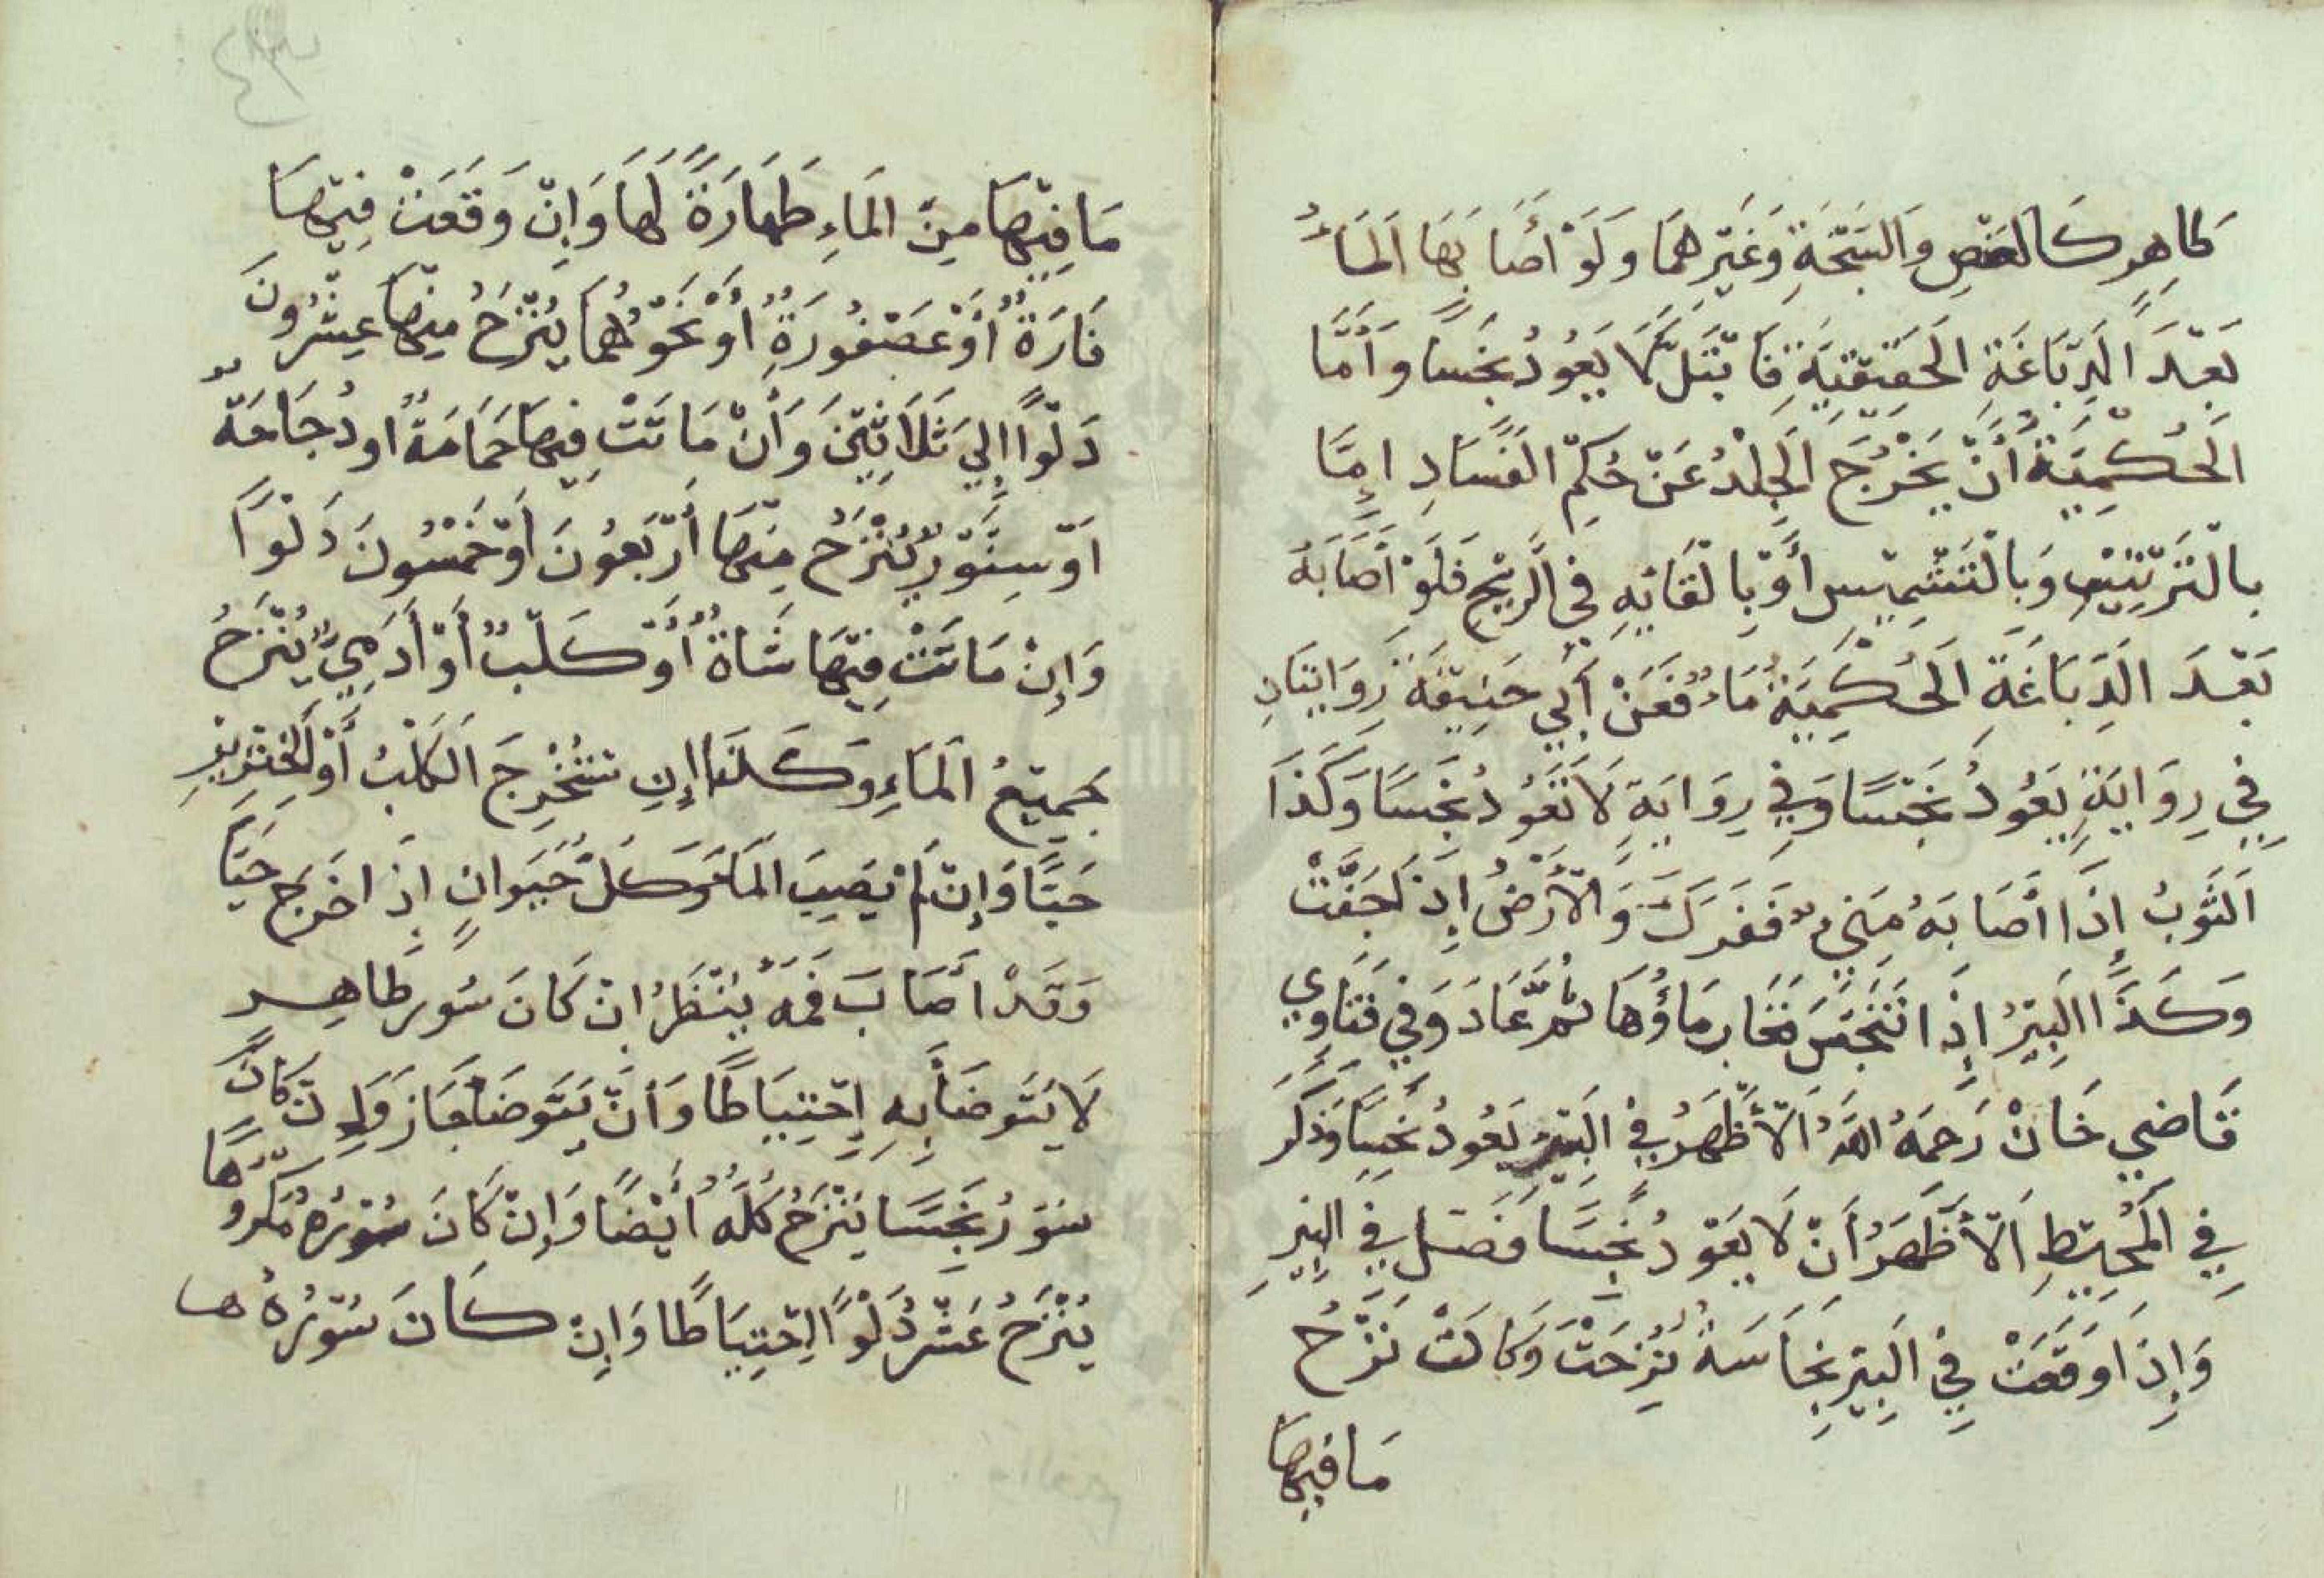 طاهر كالعفص والسبخة وغيرهما ولو أصابها الماء
بعد الدباغة الحقيقية فابتل لا يعود نجسا وأما
الحكمية أن يخرج الجلد عن حكم الفساد إما
بالتتريب وبالتشميس أو بالقائه في الريح فلو أصابه
بعد الدباغة الحكمية ماء فعن أبي حنيفة روايتان
في رواية يعود نجسا وفي رواية لا تعود نجسا وكذا
الثوب إذا أصابه مني ففرك والأرض إذ جفت
وكذا البير إذا تنجس فغار ماؤها ثم عاد وفي فتاوي
قاضي خان رحمه الله الأظهر في البير يعود نجسا وذكر
في المحيط الأظهر أن لا يعود نجسا فصل في البير
وإذا وقعت في البير نجاسة نزحت وكانت نزح
ما فيها
ما فيها من الماء طهارة لها وإن وقعت فيها
فارة أو عصفورة أو نحوهما ينزح منها عشرون
دلوا إلي ثلاثين وأن ماتت فيها حمامة او دجاجة
او سنور ينزح منها أربعون أو خمسون دلوا
وإن ماتت فيها شاة أو كلب أو أدمي ينزح
جميع الماء وكذا إن تتخرج الكلب أو الخنزير
حيا وإن لم يصيب الماء وكل حيوان إذ اخرج حيا
وقد أصاب فمه ينظر ان كان سور طاهر
لا يتوضأ به إحتياطا وأن يتوضأ جاز وإن كان
سور نجسا ينزح كله أيضا وإن كان سوره مكروها
ينزح عشر دلوا إحتياطا وإن كان سورهها